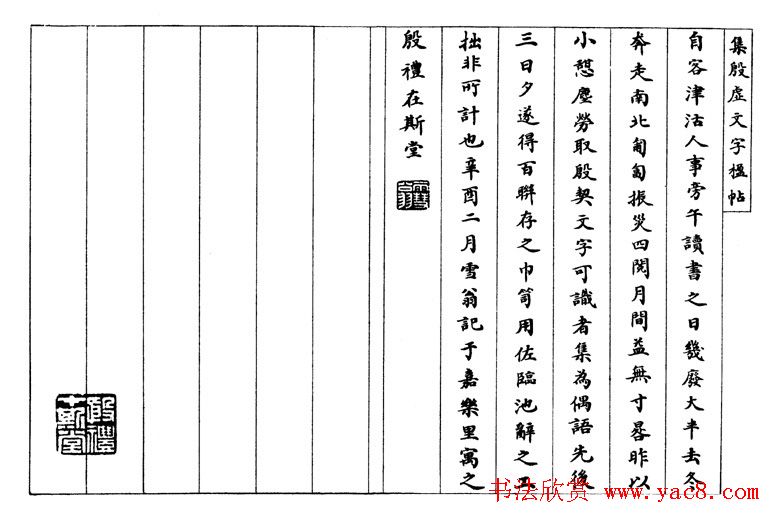 集殷虛文字楹帖
自客津沽人事旁午讀書之日幾廢大半去冬
奔走南北匍匐振災四閱月間益無寸晷昨以
小憇塵勞取殷契文字可識者集為偶語先後
三日夕遂得百聯存之巾笥用佐臨池辭之工
拙非所計也辛酉二月雪翁記于嘉樂里寓之
殷禮在斯堂
雪翁
殷禮在斯堂
书法欣赏 www.yac8.com